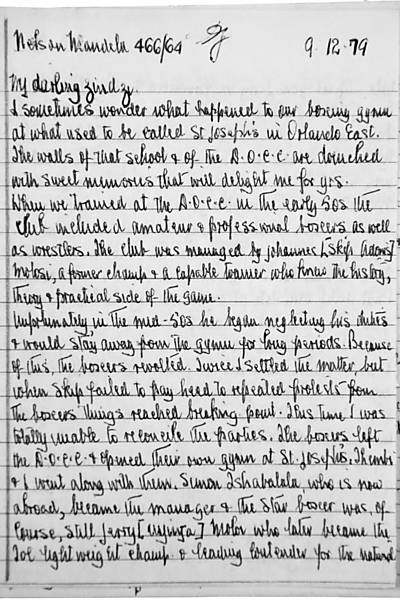 Nelson Mandela 466/64 9.12.79
My darling Zindzi,
I sometimes wonder what happened to our boxing gymn
at what used to be called St Joseph's in Orlando East.
The walls of that school & of the D.O.C.C. are drenched
with sweet memories that will delight me for yrs.
When we trained at the D.O.C.C. in the early 50s the
club included amateur & professional boxers as well
as wrestlers. The club was managed by Johannes [Skip Adonis]
Molosi, a former champ & a capable trainer who knew the history,
theory & practical side of the game.
Unfortunately, in the mid-50s he began neglecting his duties
& would stay away from the gymn for long periods. Because
of this, the boxers revolted. Twice I settled the matter, but
when Skip failed to pay heed to repeated protests from
the boxers things reached breaking point. This time I was
totally unable to reconcile the parties. The boxers left
the D.O.C.C. & opened their own gymn at St. Joseph's. Thembi
& I went along with them. Simon Tshabalala, who is now
abroad, became the manager & the star boxer was, of
course, still Jerry [Uyinja] Moloi who later became the
Tvl lightweight champ & leading contender for the national